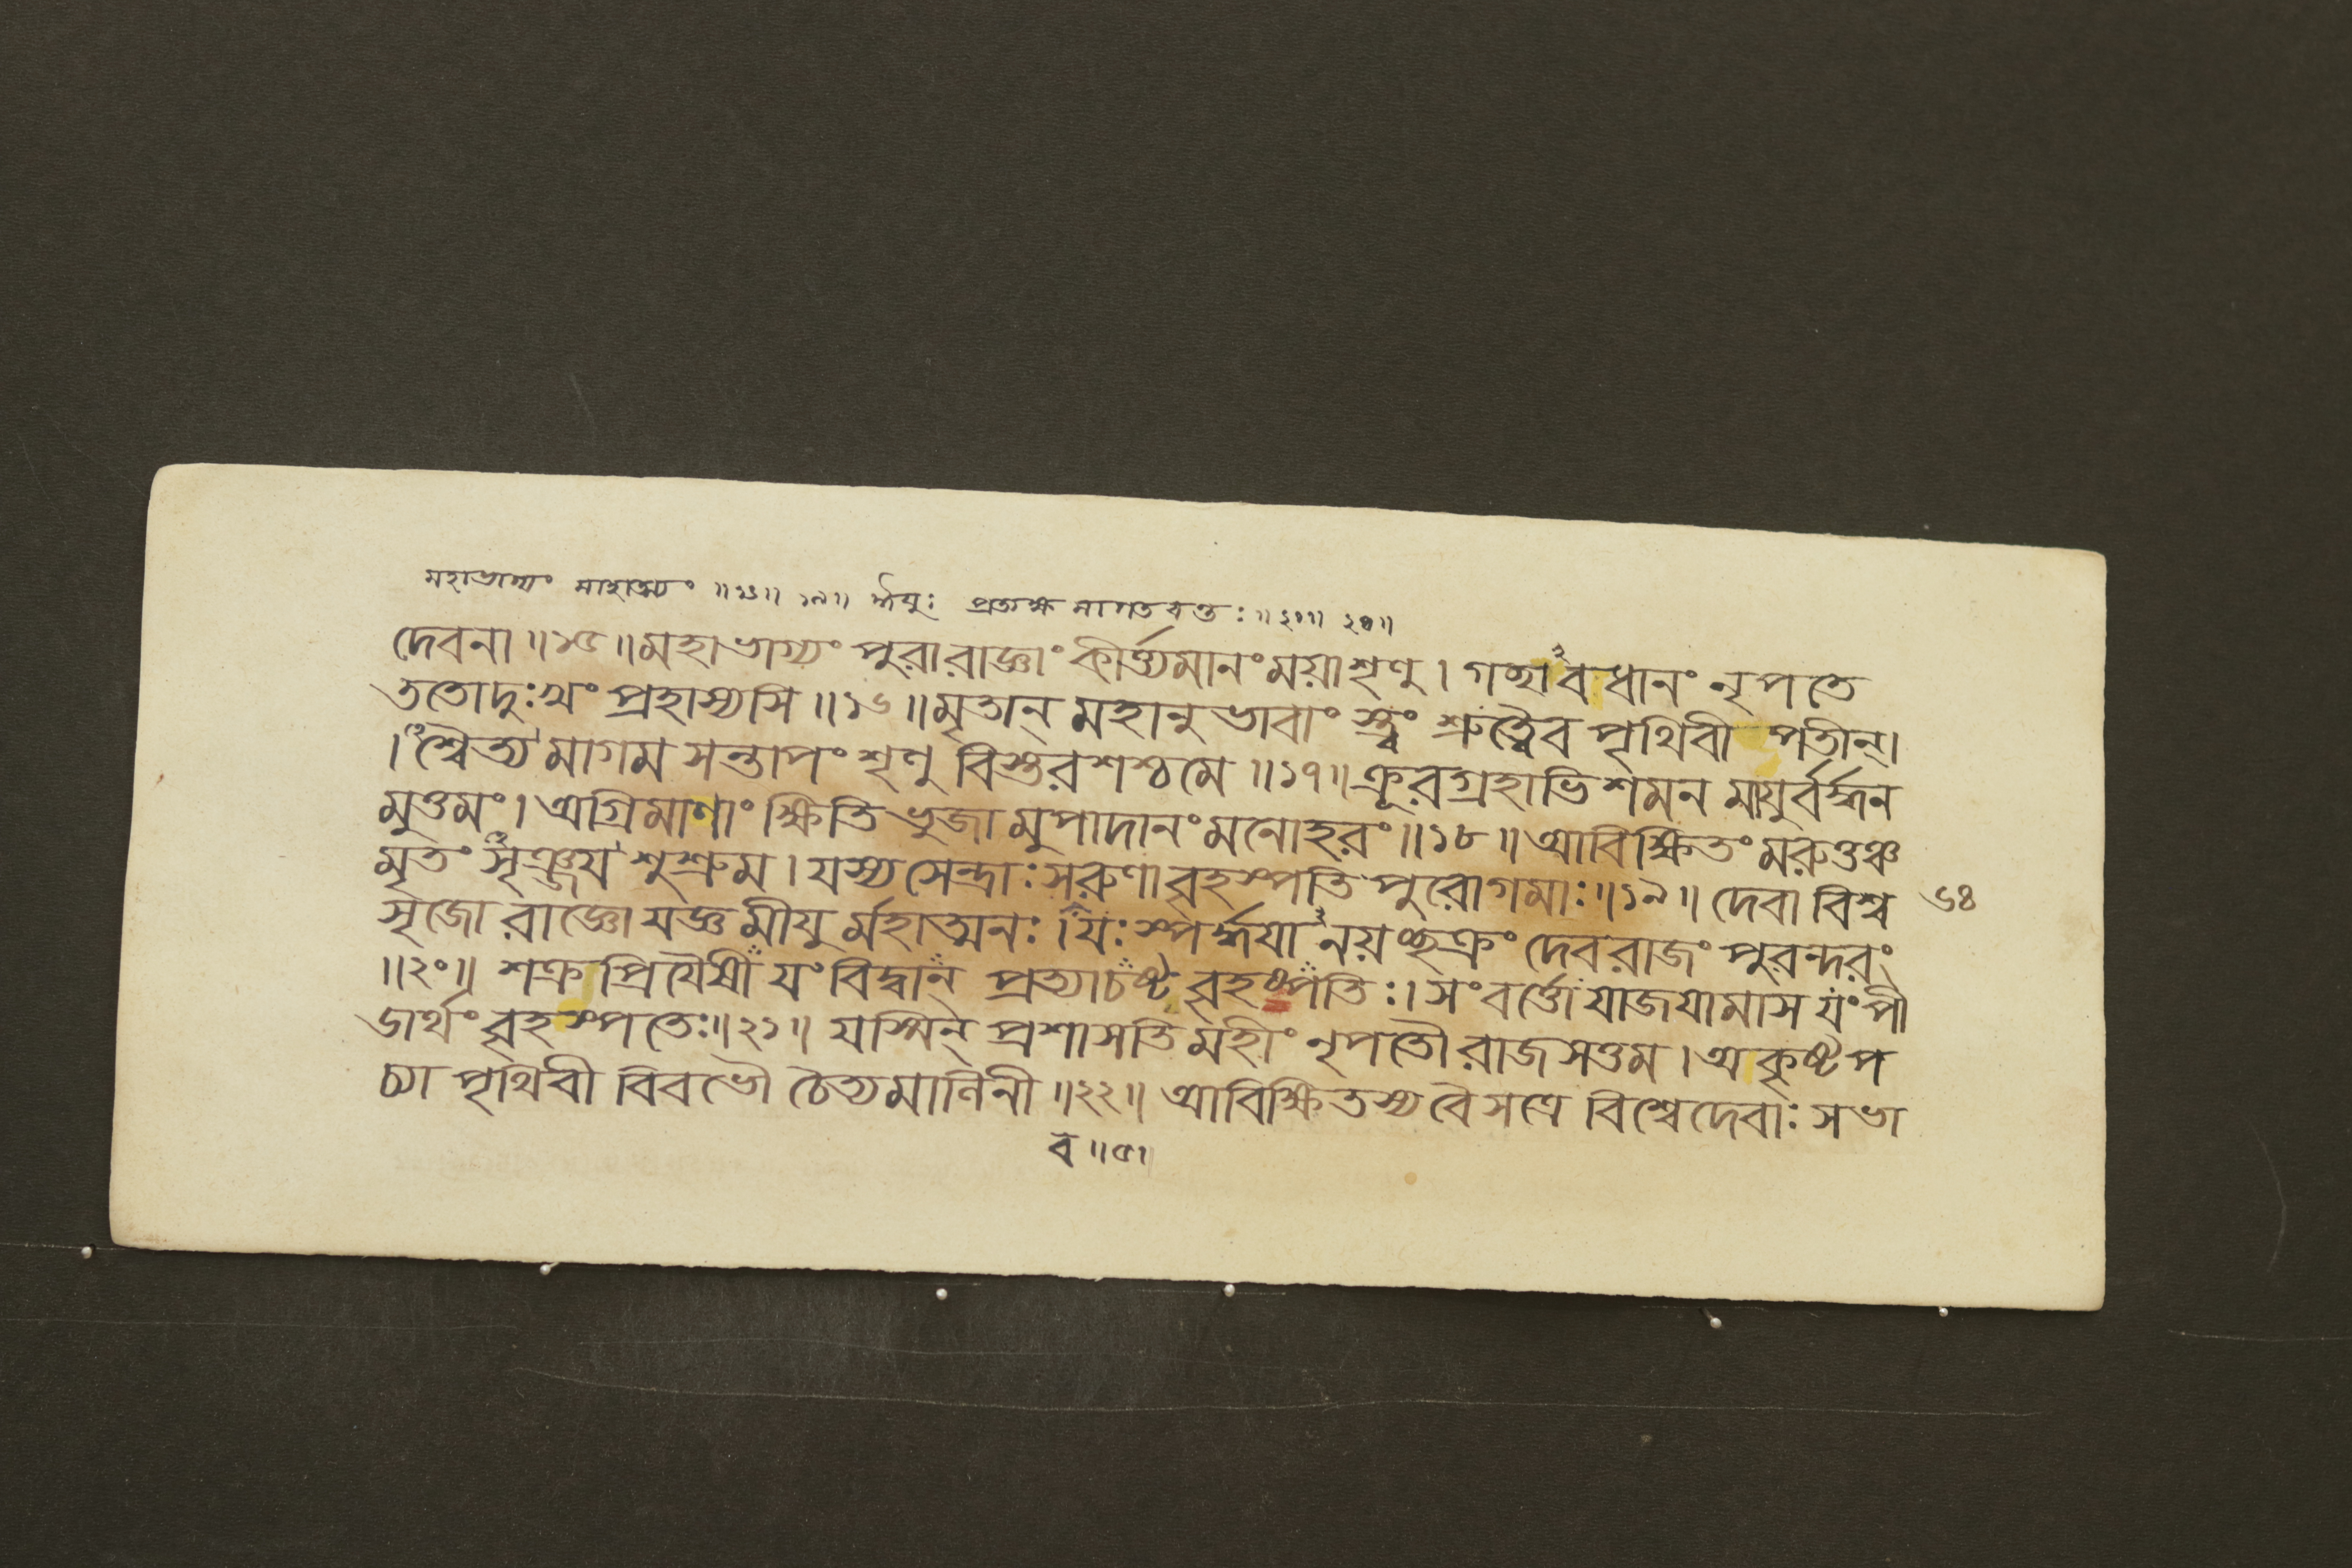 মহাভাগ্যং মাহাত্ম্যং ॥১৬॥ ১৯॥ র্ঈয়ুঃ প্রত্যক্ষ মাগতবন্তঃ ॥২০॥ ২০॥
দেবনা ॥১৫॥ মহাভাগ্যং পুরারাজ্ঞাং কীর্ত্যমানংময়াশৃণু । গচ্ছাবধানং নৃপতে
ততোদুঃখং প্রহাস্যসি ॥১৬॥ মৃতান্ মহানুভাবাং স্ত্বং শ্রুত্বৈব পৃথিবী পতীন্।
। শ্বৈত্য মাগম সন্তাপং শৃণু বিস্তরশশ্চমে ॥১৭॥ ক্রূরগ্রহাভিশমন মায়ুর্বর্দ্ধন
মুত্তমং । অগ্রিমাণাং ক্ষিতিভুজা মুপাদানংমনোহরং ॥১৮॥ আবিক্ষিতং মরুত্তঞ্চ
মৃতং সৃঞ্জয শুশ্রুম । যস্য সেন্দ্রাঃ সরুণা বৃহস্পতি পুরোগমাঃ ॥১৯॥ দেবা বিশ্ব ৬৪
সৃজো রাজ্ঞো যজ্ঞ মীযু র্মহাত্মনঃ । যঃ স্পর্দ্ধযা নয়চ্ছক্রং দেবরাজং পুরন্দরং
॥২০॥ শক্র প্রিযৈষী যং বিদ্বান্ প্রত্যাচষ্ট বৃহস্পতিঃ । সংবর্ত্তো যাজযামাস যং পী
ডার্থং বৃহস্পতেঃ ॥২১॥ যস্মিন্ প্রশাসতি মহীং নৃপতৌ রাজসত্তম । অকৃষ্টপ
চ্যা পৃথিবী বিবভৌ চৈত্যমালিনী ॥২২॥ আবিক্ষিতস্য বৈ সত্রে বিশ্বেদেবাঃ সভা
ব ॥৫৷